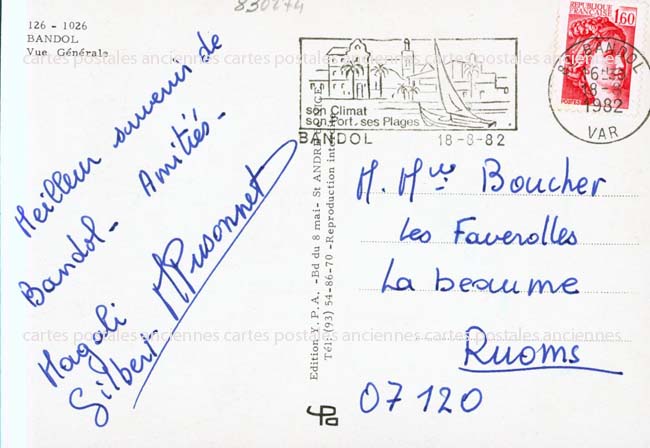 830274
126 - 1026
BANDOL
Vue Générale
cartes postales anciennes cartes postales anciennes cartes postales anciennes
Meilleur souvenir de
Bandol - Amitiés -
Magali
Gilbert
son Climat
son Port, ses Plages
BANDOL 18-8-82
REPUBLIQUE
FRANÇAISE
1,60
BANDOL
18 - 8
1982
VAR
Edition Y. P. A. -Bd du 8 mai- St ANDRE
Tél: (93) 54-86-70 -Reproduction interdite
M. Mme Boucher
Les Faverolles
La beaume
Ruoms
07120
cartes postales anciennes cartes postales anciennes cartes postales anciennes